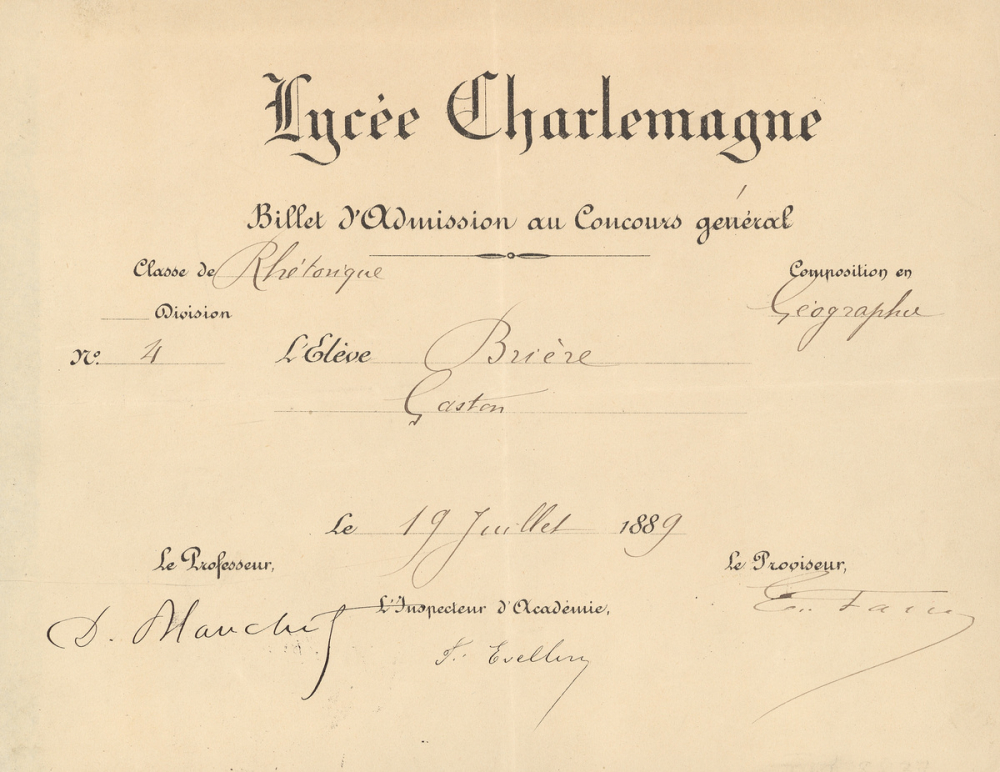 Lycée Charlemagne
Billet d'Admission au Concours général
Classe de Rhétorique
Composition en
Géographie
Division
N.º 4 L'Elève Brière
Gaston
Le 19 Juillet 1889
Le Professeur,
Le Proviseur,
L'Inspecteur d'Académie,
D.
F.
E.